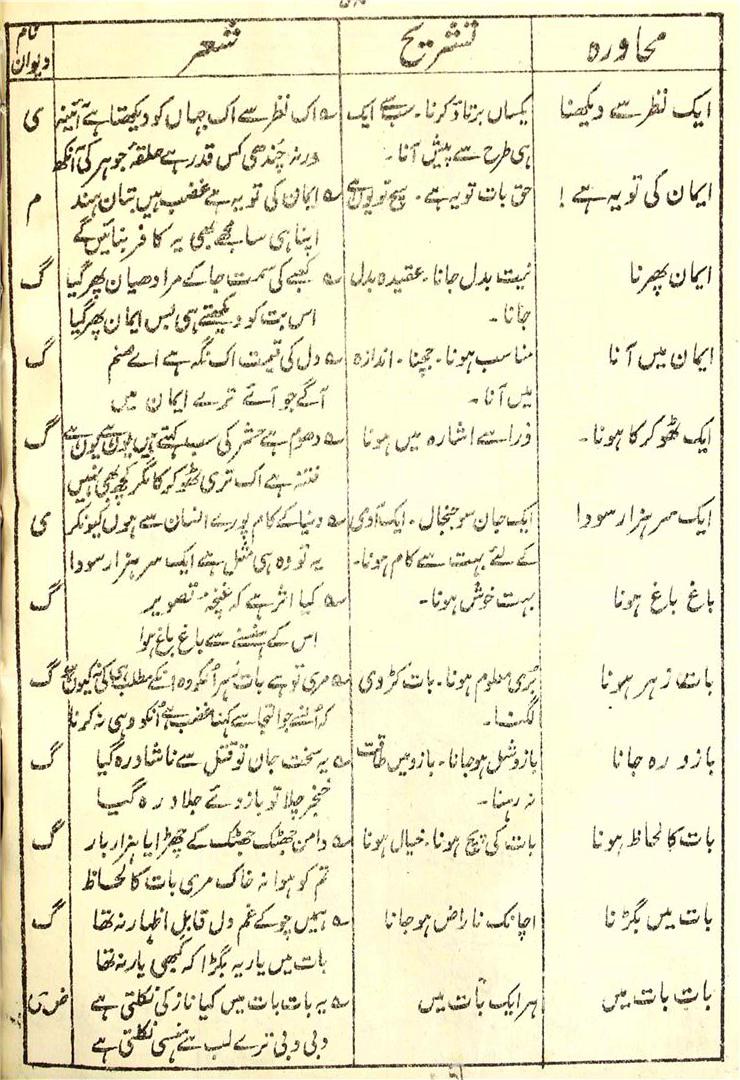 محاورہ تشریح شعر نام دیوان
ایک نظر سے دیکھنا یکساں برتاؤ کرنا۔ سب سے ایک ؎ اک نظر سے اک جہاں کو دیکھتا ہے آئینہ ی
ہی طرح سے پیش آنا۔ ورنہ چندھی کس قدر ہے حلقۂ جوہر کی آنکھ
ایمان کی تو یہ ہے! حق بات تو یہ ہے۔ سچ تو یوں ہے ؎ ایمان کی تو یہ ہے غضب ہیں بتان ہند م
اپنا ہی سا مجھے بھی یہ کافر بنائیں گے
ایمان پھرنا نیت بدل جانا۔ عقیدہ بدل ؎ کعبے کی سمت جا کے مرا دھیان پھر گیا گ
جانا۔ اس بت کو دیکھتے ہی بس ایمان پھر گیا
ایمان میں آنا مناسب ہونا۔ جچنا۔ اندازہ ؎ دل کی قیمت اک نگہ ہے اے صنم گ
میں آنا۔ آگے جو آئے ترے ایمان میں
ایک ٹھوکر کا ہونا۔ ذرا سے اشارہ میں ہونا ؎ دھوم ہے حشر کی سب کہتے ہیں یوں ہے یوں ہے گ
فتنہ ہے اک تری ٹھوکر کا مگر کچھ بھی نہیں
ایک سر ہزار سودا ایک جان سو جنجال۔ ایک آدمی ؎ دنیا کے کام پورے انسان سے ہوں کیونکر ی
کے لئے بہت سے کام ہونا۔ یہ تو وہ ہی مثل ہے ایک سر ہزار سودا
باغ باغ ہونا بہت خوش ہونا۔ ؎ کیا اثر ہے کہ غنچۂ تصویر گ
اس کے ہنسنے سے باغ باغ ہوا
بات زہر ہونا بُری معلوم ہونا۔ بات کڑوی ؎ مری تو ہے بات زہر اُنکو وہ انکے مطلب ہی کی نہ کیوں ہے گ
لگنا۔ کہ اُنسے جو التجا سے کہنا غضب ہے اُنکو وہی نہ کرنا
بازو رہ جانا بازو شل ہو جانا۔ بازو میں طاقت ؎ یہ سخت جان تو قتل سے ناشاد رہ گیا گ
نہ رہنا۔ خنجر چلا تو بازوئے جلاد رہ گیا
بات کا لحاظ ہونا بات کی پچ ہونا۔ خیال ہونا ؎ دامن جھٹک جھٹک کے چھڑایا ہزار بار گ
تم کو ہوا نہ خاک مری بات کا لحاظ
بات میں بگڑنا اچانک ناراض ہو جانا ؎ ہمیں چوکے غم دل قابل اظہار نہ تھا گ
بات میں یار یہ بگڑا کہ کبھی یار نہ تھا
بات بات میں ہر ایک بات میں ؎ یہ بات بات میں کیا ناز کی نکلتی ہے ض ی
دبی دبی ترے لب سے ہنسی نکلتی ہے